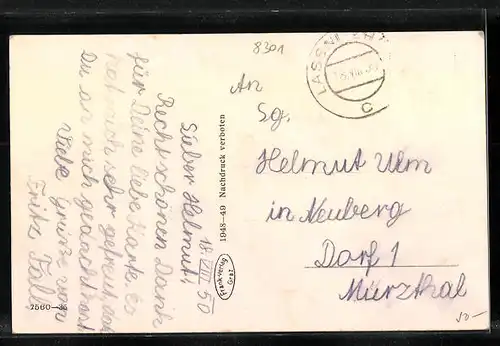 8301
LASSNI
18. VIII. 50
Lieber Helmut!
Recht schönen Dank
für Deine liebe Karte. Es
hat mich sehr gefreut, daß
Du an mich gedacht hast
Viele Grüße von
Fritz
1948–49 Nachdruck verboten
Frankverlag
Graz
An
Sg.
Helmut Ulm
in Neuberg
Dorf 1
Mürzthal
50-